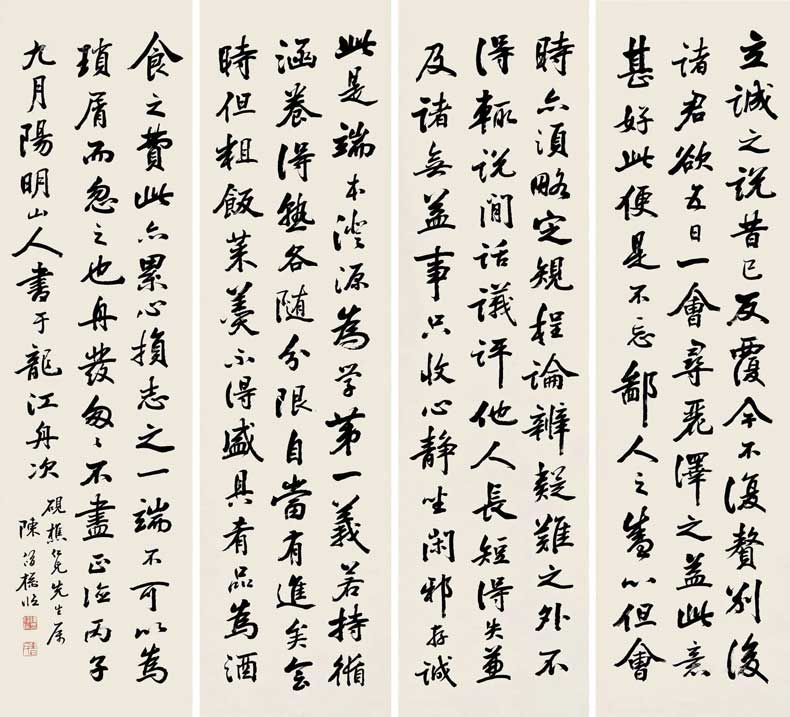 立誠之說昔已反覆今不復贅別後
諸君欲五日一會尋麗澤之益此意
甚好此便是不忘鄙人之盛心但會
時亦須略定規程論辨疑難之外不
得輒說閒話議評他人長短得失並
及諸無益事只收心靜坐閑邪存誠
此是端本澄源為学第一義若持循
涵養得熟各隨分限自當有進矣會
時但粗飯菜羹不得盛具肴品為酒
食之費此亦累心損志之一端不可以為
瑣屑而忽之也舟發匆〻不盡正德丙子
九月陽明山人書于龍江舟次
硯樵仁兄先生属
陳